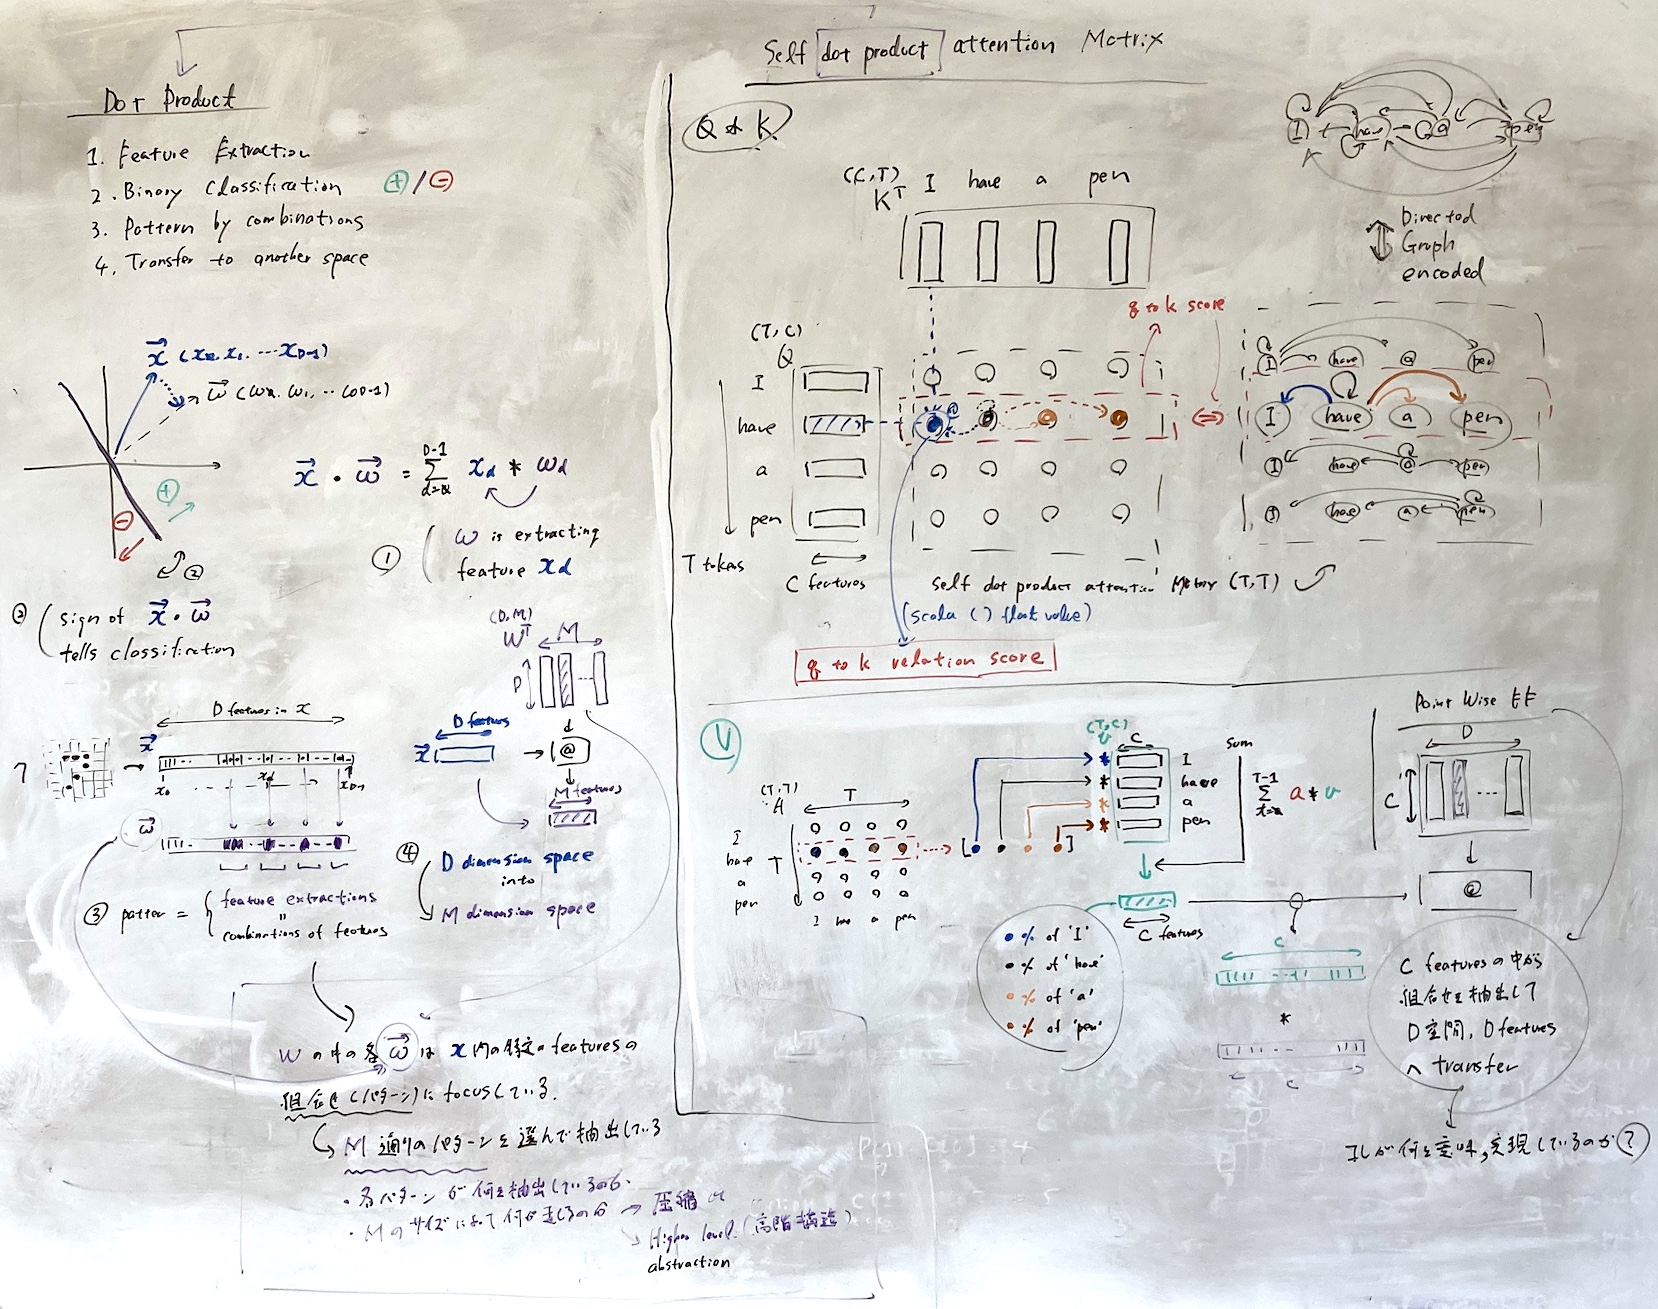 Dot Product
1. Feature Extraction
2. Binary Classification ⊕/⊖
3. Pattern by combinations
4. Transfer to another space
x (x0, x1, ... xD-1)
w (w0, w1, ... wD-1)
⊕
⊖
②
x · w = Σ xd * wd
D-1
d=0
① w is extracting
feature xd
② sign of x · w
tells classification
(D, M)
W^T
M
D
D features
x
@
M features
D features in x
x
x0
xd
xD-1
w
③ patter = feature extractions
"
combinations of features
④ D dimension space
into
M dimension space
Wの中の各wはx内の特定のfeaturesの
組合せ(パターン)にfocusしている.
M通りのパターンを選んで抽出している
・各パターンが何を抽出しているのか.
・Mのサイズによって何が起こるのか → 圧縮
Higher level (高階構造)
abstraction
Self dot product attention Matrix
Q & K
(C, T)
K^T
I have a pen
(T, C)
Q
I
have
a
pen
T tokens
C features
q to k score
Self dot product attention Matrix (T, T)
(scala () float value)
q to k relation score
I have a pen
Directed
Graph
encoded
I have a pen
I have a pen
I have a pen
I have a pen
V
(T, T)
A
T
I
have
a
pen
T
I have a pen
(T, C)
V
C
* I
* have
* a
* pen
Sum
T-1
Σ a * v
C features
% of 'I'
% of 'have'
% of 'a'
% of 'pen'
C
*
C
Point Wise FF
D
C
@
C featuresの中から
組合せを抽出して
D空間, D features
へ transfer
コレが何を意味,実現しているのか?